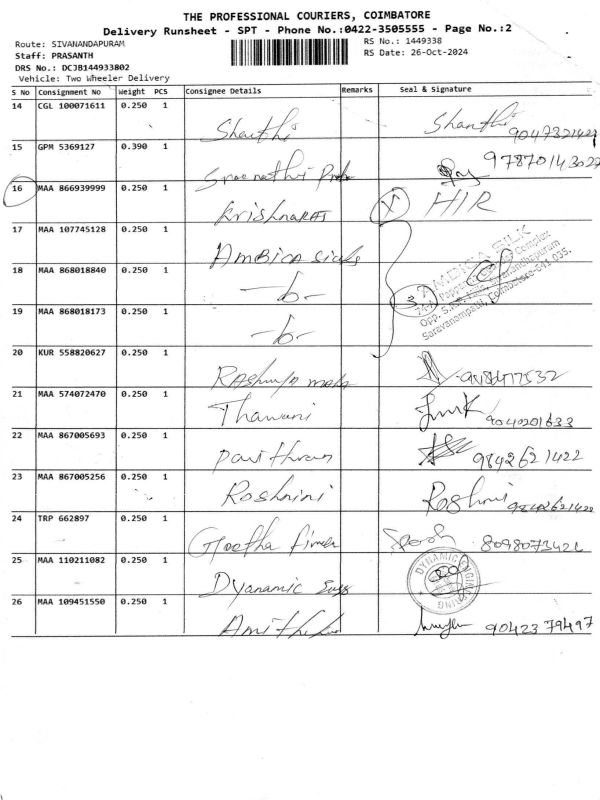 THE PROFESSIONAL COURIERS, COIMBATORE
Delivery Runsheet - SPT - Phone No.:0422-3505555 - Page No.:2
Route: SIVANANDAPURAM
RS No.: 1449338
Staff: PRASANTH
RS Date: 26-Oct-2024
DRS No.: DCJB144933802
Vehicle: Two Wheeler Delivery
S No Consignment No Weight PCS Consignee Details Remarks Seal & Signature
14 CGL 100071611 0.250 1
Shanthi Shanthi
15 GPM 5369127 0.390 1
9787014302
16 MAA 866939999 0.250 1
Krishnaraj X HIR
17 MAA 107745128 0.250 1
AMBICA Silks
AMBICA SILK
18 MAA 868018840 0.250 1
3
Opp.
Saravanampatti, Coimbatore-641 035.
19 MAA 868018173 0.250 1
20 KUR 558820627 0.250 1
21 MAA 574072470 0.250 1
Thawani 9040201633
22 MAA 867005693 0.250 1
9842621422
23 MAA 867005256 0.250 1
Roshnini Roshni 9842621422
24 TRP 662897 0.250 1
Geetha
25 MAA 110211082 0.250 1
Dyanamic Engg
DYNAMIC ENGINEERING
26 MAA 109451550 0.250 1
9042379497